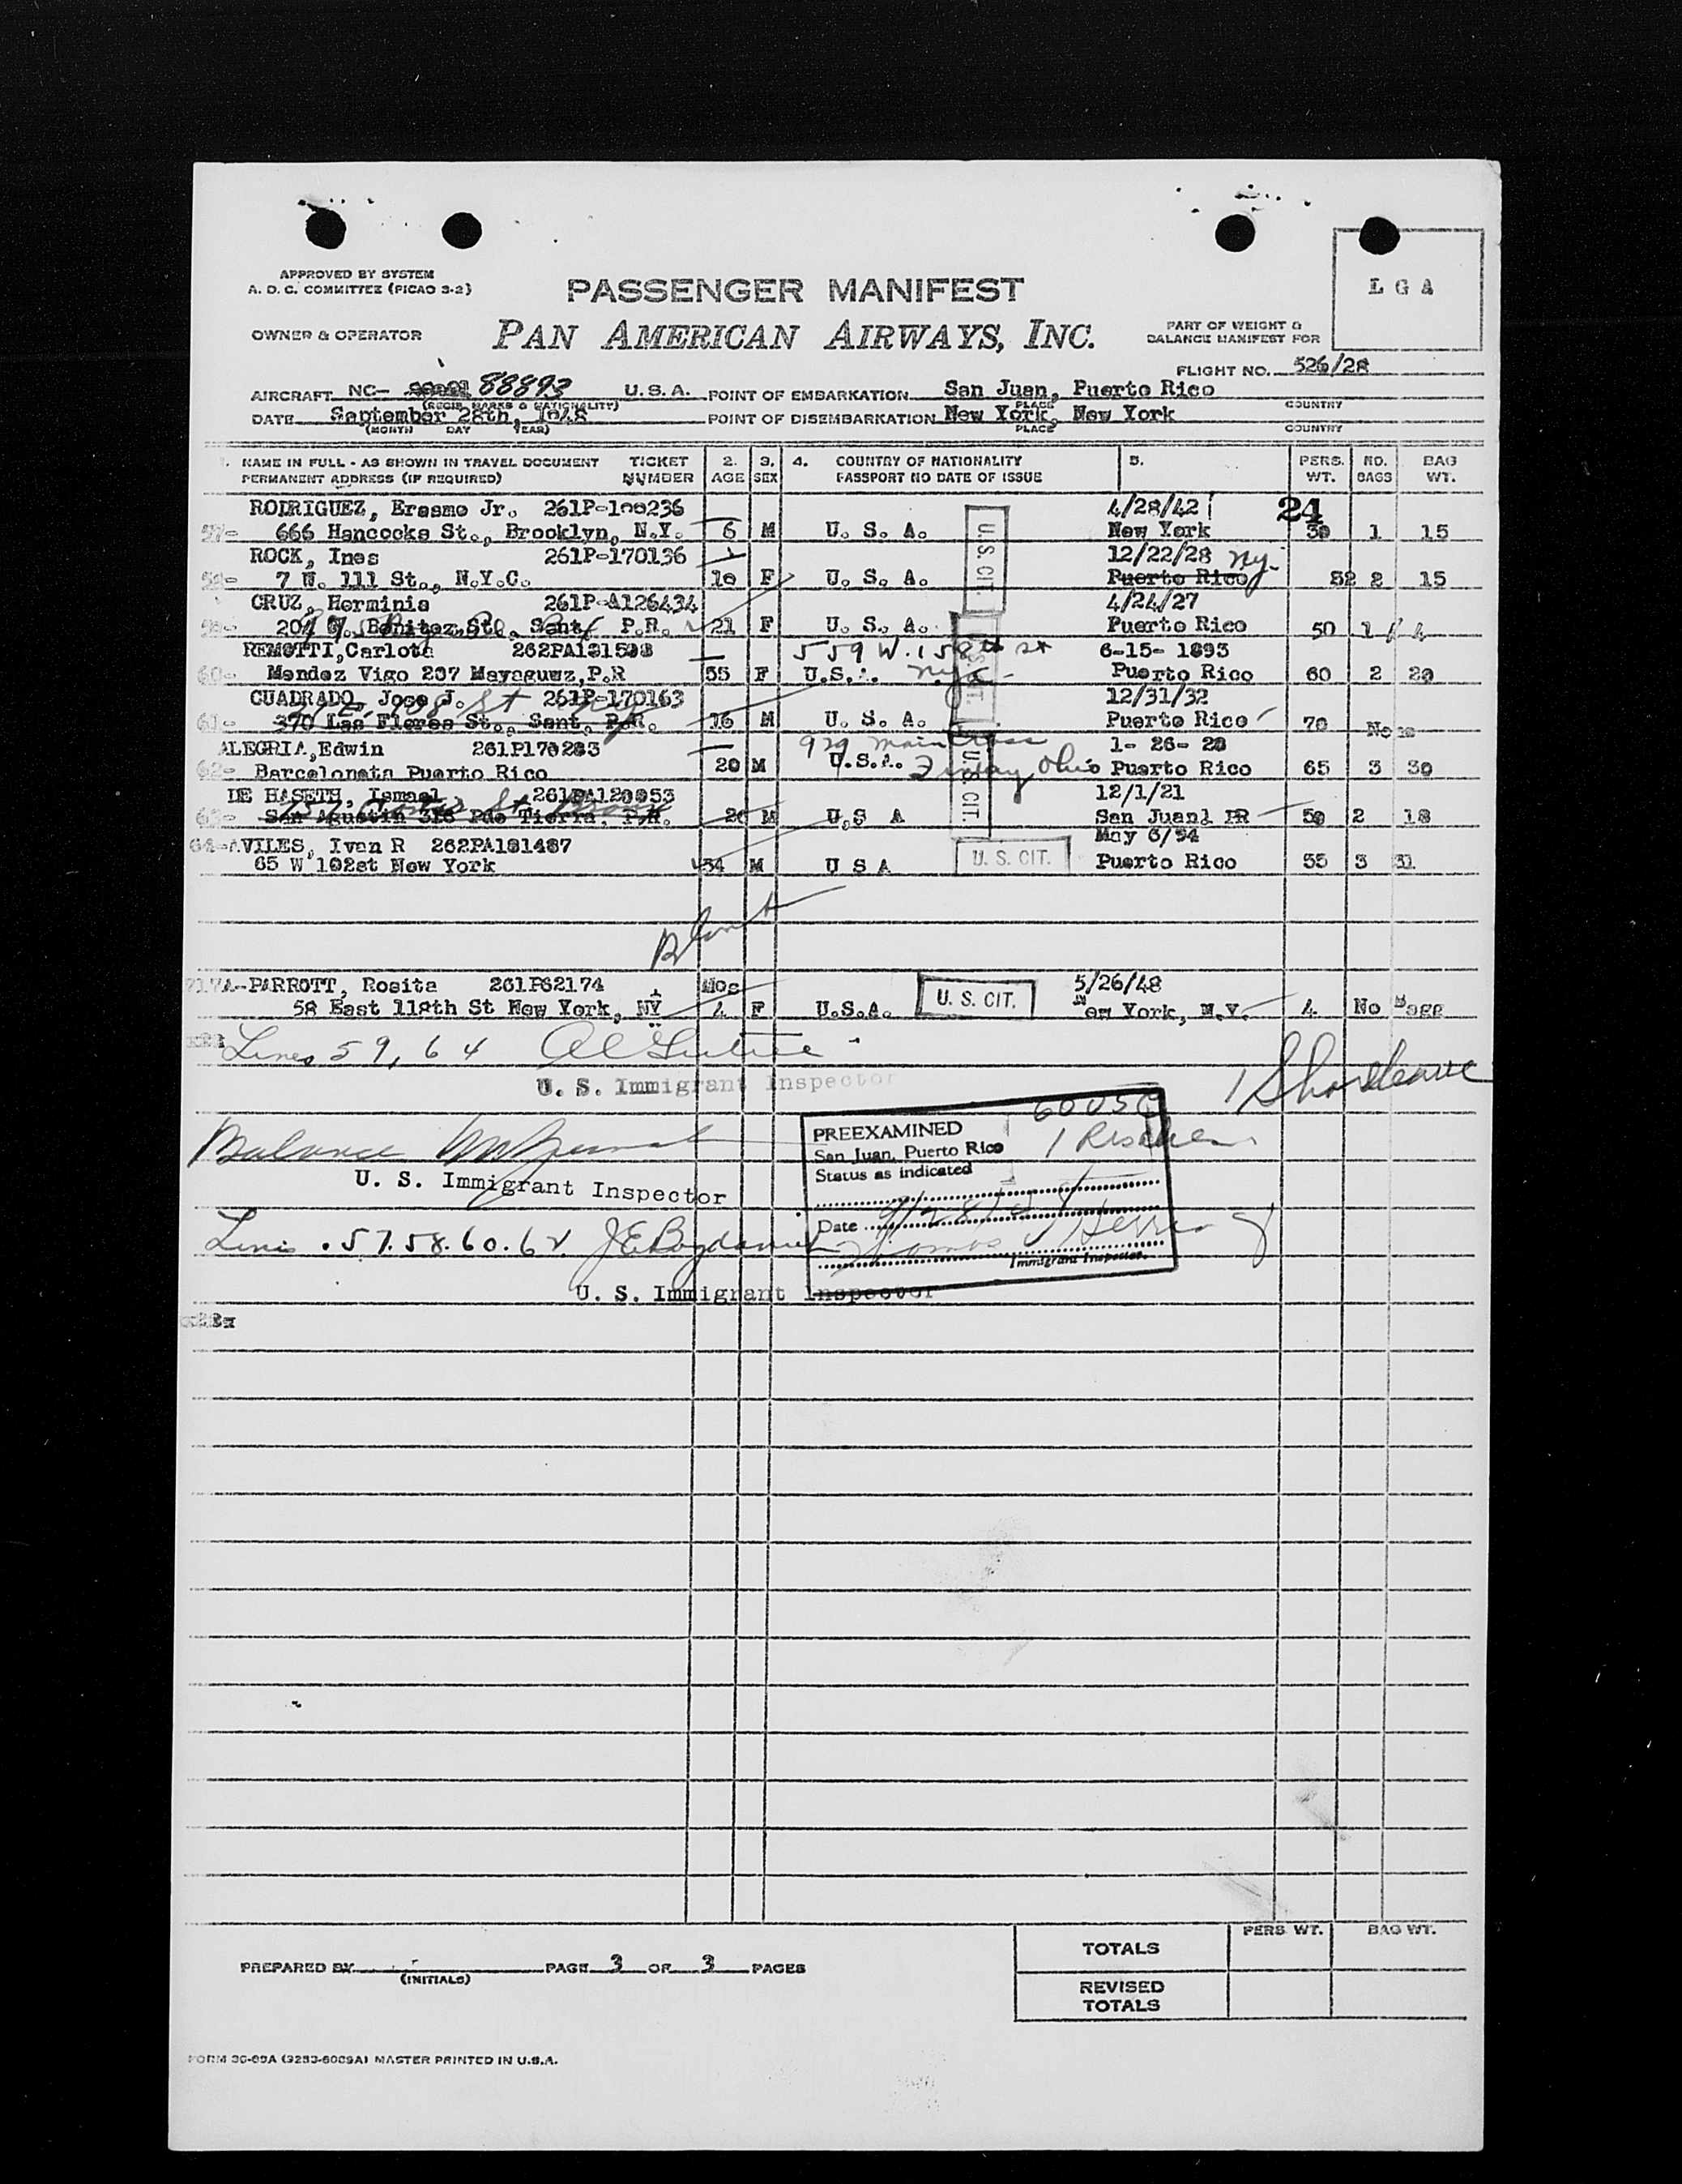 APPROVED BY SYSTEM
A. D. C. COMMITTEE (PICAO 3-2)
PASSENGER MANIFEST
L G A
OWNER & OPERATOR
PAN AMERICAN AIRWAYS, INC.
PART OF WEIGHT &
BALANCE MANIFEST FOR
FLIGHT NO. 526/28
AIRCRAFT NC- 88893 U.S.A. POINT OF EMBARKATION San Juan, Puerto Rico
(REGIS. MARKS & NATIONALITY) PLACE COUNTRY
DATE September 28th, 1948 POINT OF DISEMBARKATION New York, New York
(MONTH DAY YEAR) PLACE COUNTRY
1. NAME IN FULL - AS SHOWN IN TRAVEL DOCUMENT TICKET 2. 3. 4. COUNTRY OF NATIONALITY 5. PERS. NO. BAG
PERMANENT ADDRESS (IF REQUIRED) NUMBER AGE SEX PASSPORT NO DATE OF ISSUE WT. BAGS WT.
RODRIGUEZ, Erasmo Jr. 261P-100236 4/28/42 24
57- 666 Hancocks St., Brooklyn, N.Y. 6 M U. S. A. New York 30 1 15
ROCK, Ines 261P-170136 12/22/28 NY.
58- 7 W. 111 St., N.Y.C. 10 F U. S. A. Puerto Rico 52 2 15
CRUZ, Herminia 261P-A126434 4/24/27
59- Benitez St., Sant, P.R. 21 F U. S. A. Puerto Rico 50 1
REMOTTI, Carlota 262PA181598 559 W. 158th St 6-15- 1893
60- Mendez Vigo 207 Mayaguez, P.R 55 F U.S.A. Puerto Rico 60 2 20
CUADRADO, Jose J. 261P-170163 12/31/32
61- 370 Las Flores St., Sant, P.R. 16 M U. S. A. Puerto Rico 70 None
ALEGRIA, Edwin 261P170283 929 Main Cross 1- 26- 28
62- Barceloneta Puerto Rico 20 M U.S.A. Ohio Puerto Rico 65 3 30
DE HASETH, Ismael 261PA120053 12/1/21
63- San Agustin 313 Pda Tierra, P.R. 26 M U,S A San Juan1 PR 50 2 18
64-AVILES, Ivan R 262PA181487 May 6/94
65 W 102st New York 54 M U S A U. S. CIT. Puerto Rico 55 3 31
U. S. CIT.
U. S. CIT.
U. S. CIT.
Blank
217A-PARROTT, Rosita 261P62174 Mos 5/26/48
58 East 118th St New York, NY 4 F U.S.A. U. S. CIT. New York, N.Y. 4 No Bagg
Lines 59, 64
U. S. Immigrant Inspector
1 Shoreleave
60 USC
Balance
PREEXAMINED
San Juan, Puerto Rico
Status as indicated
U. S. Immigrant Inspector
Date 9/28/48
Lines . 57. 58. 60. 62.
Immigrant Inspector.
U. S. Immigrant Inspector
TOTALS PERS WT. BAG WT.
REVISED
TOTALS
PREPARED BY PAGE 3 OF 3 PAGES
(INITIALS)
FORM 30-89A (9283-6009A) MASTER PRINTED IN U.S.A.